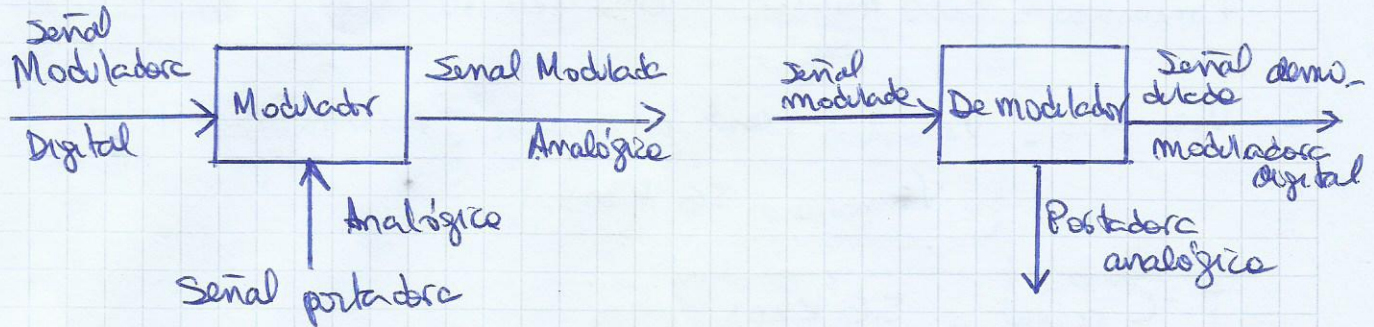 Señal
Moduladora
Digital
Modulador
Senal Modulada
Analógica
Analógica
Señal portadora
Señal
modulada
Demodulador
Señal demo-
dulada
moduladora
digital
Portadora
analógica